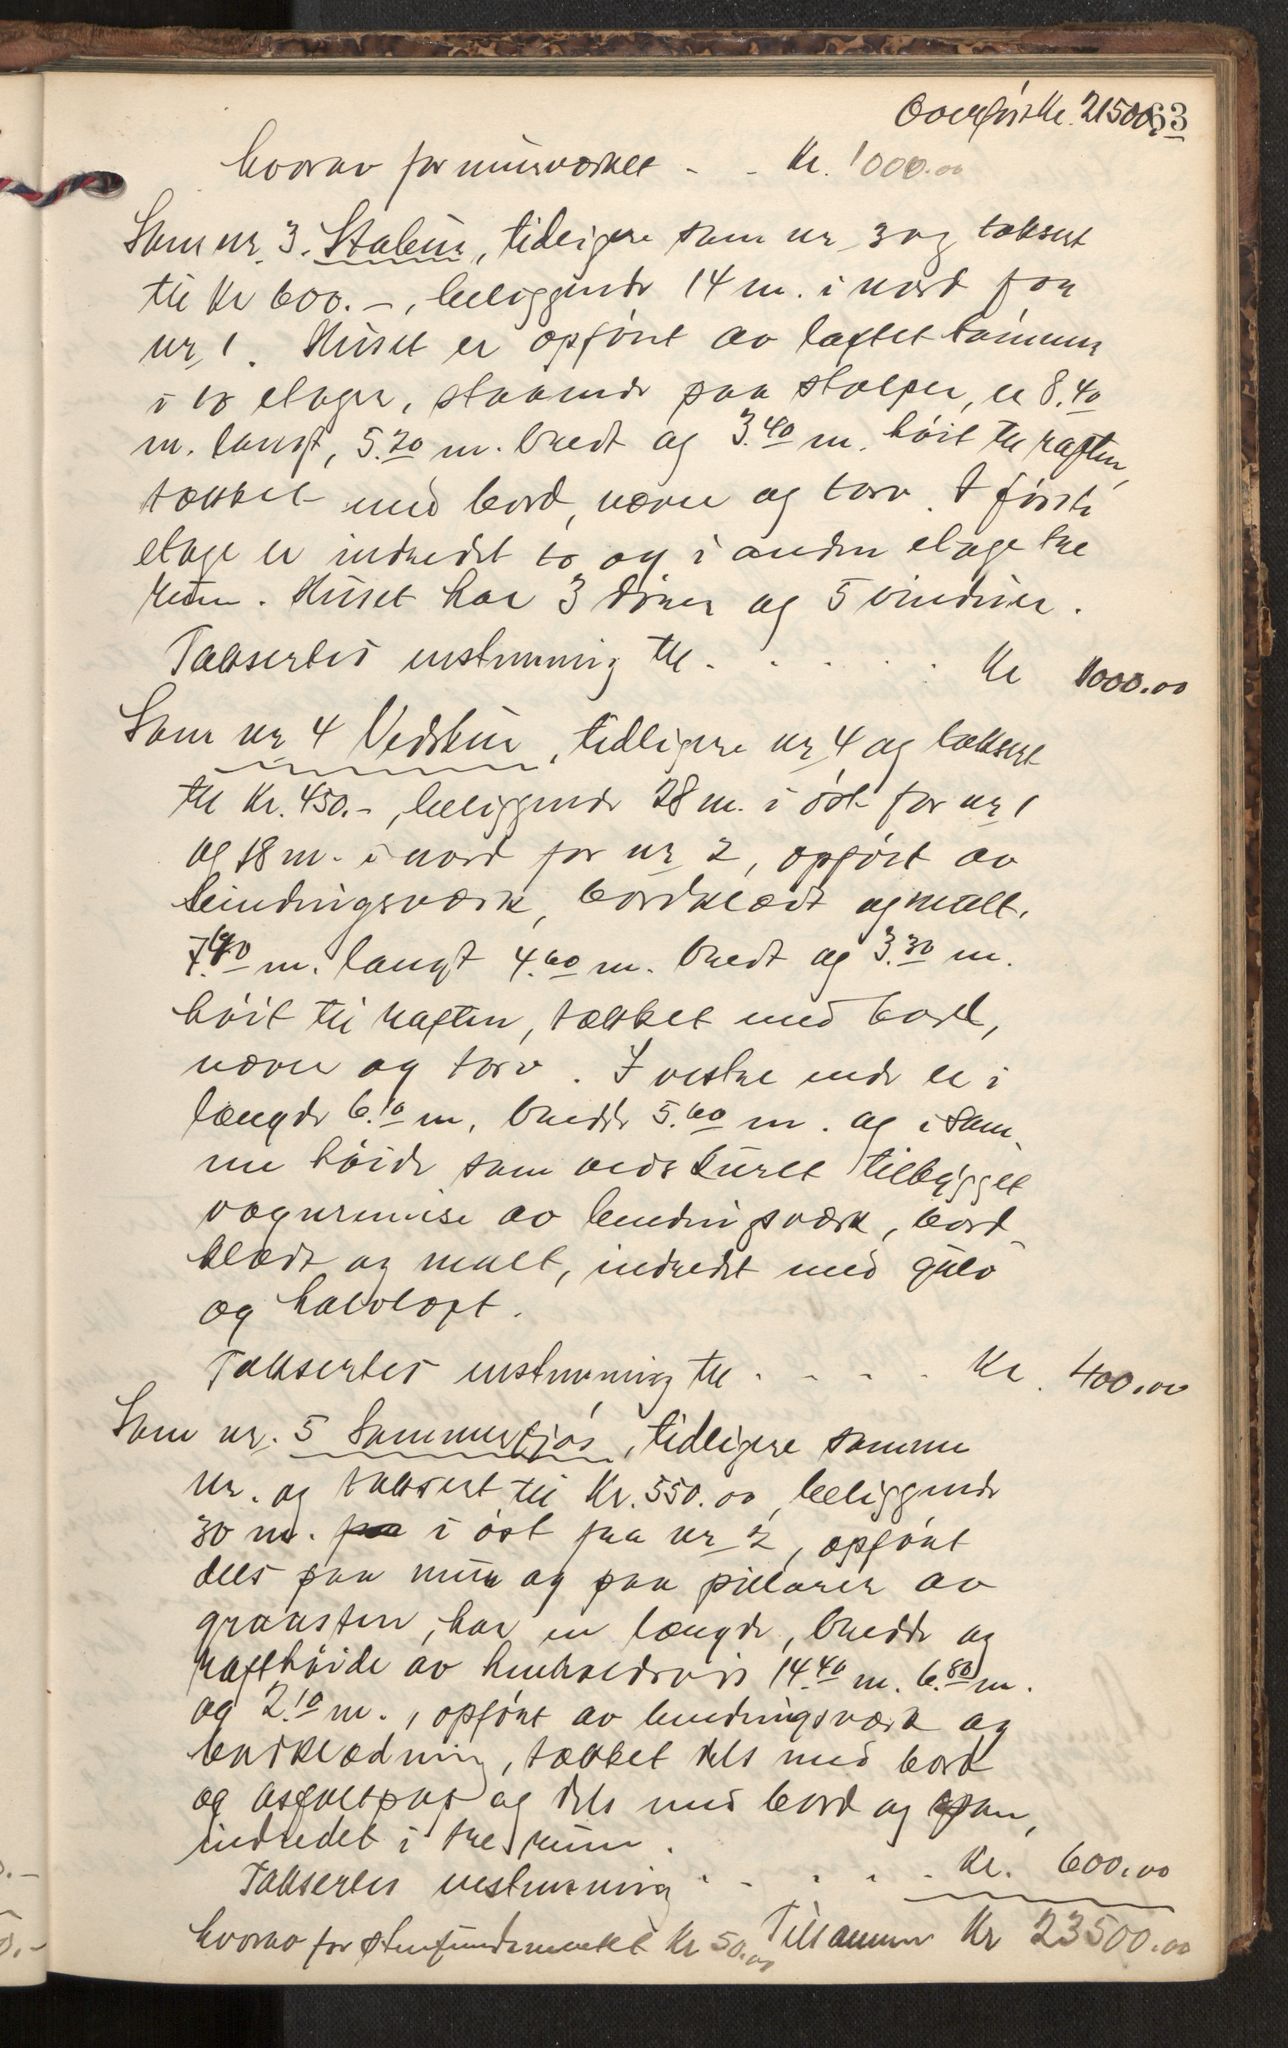 Overført Kr. 21500.
63
hvorav for murværket - - Kr. 1000.00
Som nr. 3. Stabur, tidligere som nr 3 og taksert
til Kr 600.-, beliggende 14 m. i nord for
nr 1. Huset er opført av laftet tømmer
i to etager, staaende paa stolper, er 8.40
m. langt, 5.20 m. bredt og 3.40 m. høit til raften,
tækket med bord, næver og torv. I første
etage er indredet to og i anden etage tre
rum. Huset har 3 dører og 5 vinduer.
Taksertes enstemmig til . . . . . Kr 1000.00
Som nr 4 Vedskur, tidligere nr 4 og taksert
til Kr. 450.-, beliggende 28 m. i øst for nr 1
og 18 m. i nord for nr 2, opført av
bindingsværk, bordklædt og malt.
m. langt 4.60 m. bredt og 3.30 m.
høit til raften, tækket med bord,
næver og torv. I vestre ende er i
længde 6.10 m, bredde 5.60 m. og i sam-
me høide som vedskuret tilbygget
vognremise av bindingsværk, bord-
klædt og malt, indredet med gulv
og halvloft.
Taksertes enstemmig til . - - . Kr. 400.00
Som nr. 5 Sommerfjøs, tidligere samme
nr. og taksert til Kr. 550.00, beliggende
30 m. fra i øst fra nr 2, opført
dels paa mur og paa pillarer av
graasten, har en længde, bredde og
rafthøide av henholdsvis 14.40 m. 6.80 m.
og 2.10 m., opført av bindingsværk og
bordklædning, tækket dels med bord
og asfaltpap og dels med bord og spon,
indredet i tre rum.
Taksertes enstemmig . - . . . Kr. 600.00
hvorav for stenfundamentet Kr 50.00 Tilsammen Kr 23500.00